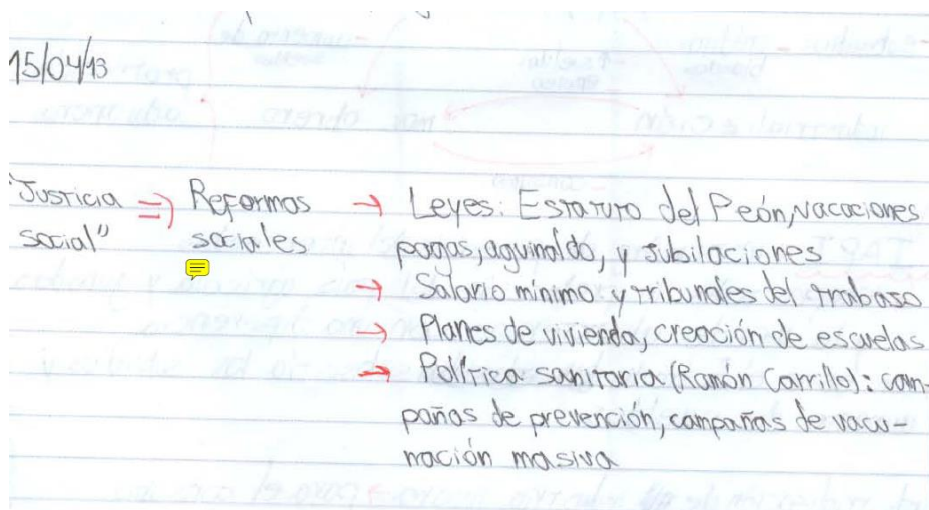 15/04/13
"Justicia => Reformas → Leyes: Estatuto del Peón, vacaciones
social" sociales pagas, aguinaldo, y jubilaciones
→ Salario mínimo y tribunales del trabajo
→ Planes de vivienda, creación de escuelas
→ Política sanitaria (Ramón Carrillo): cam-
pañas de prevención, campañas de vacu-
nación masiva